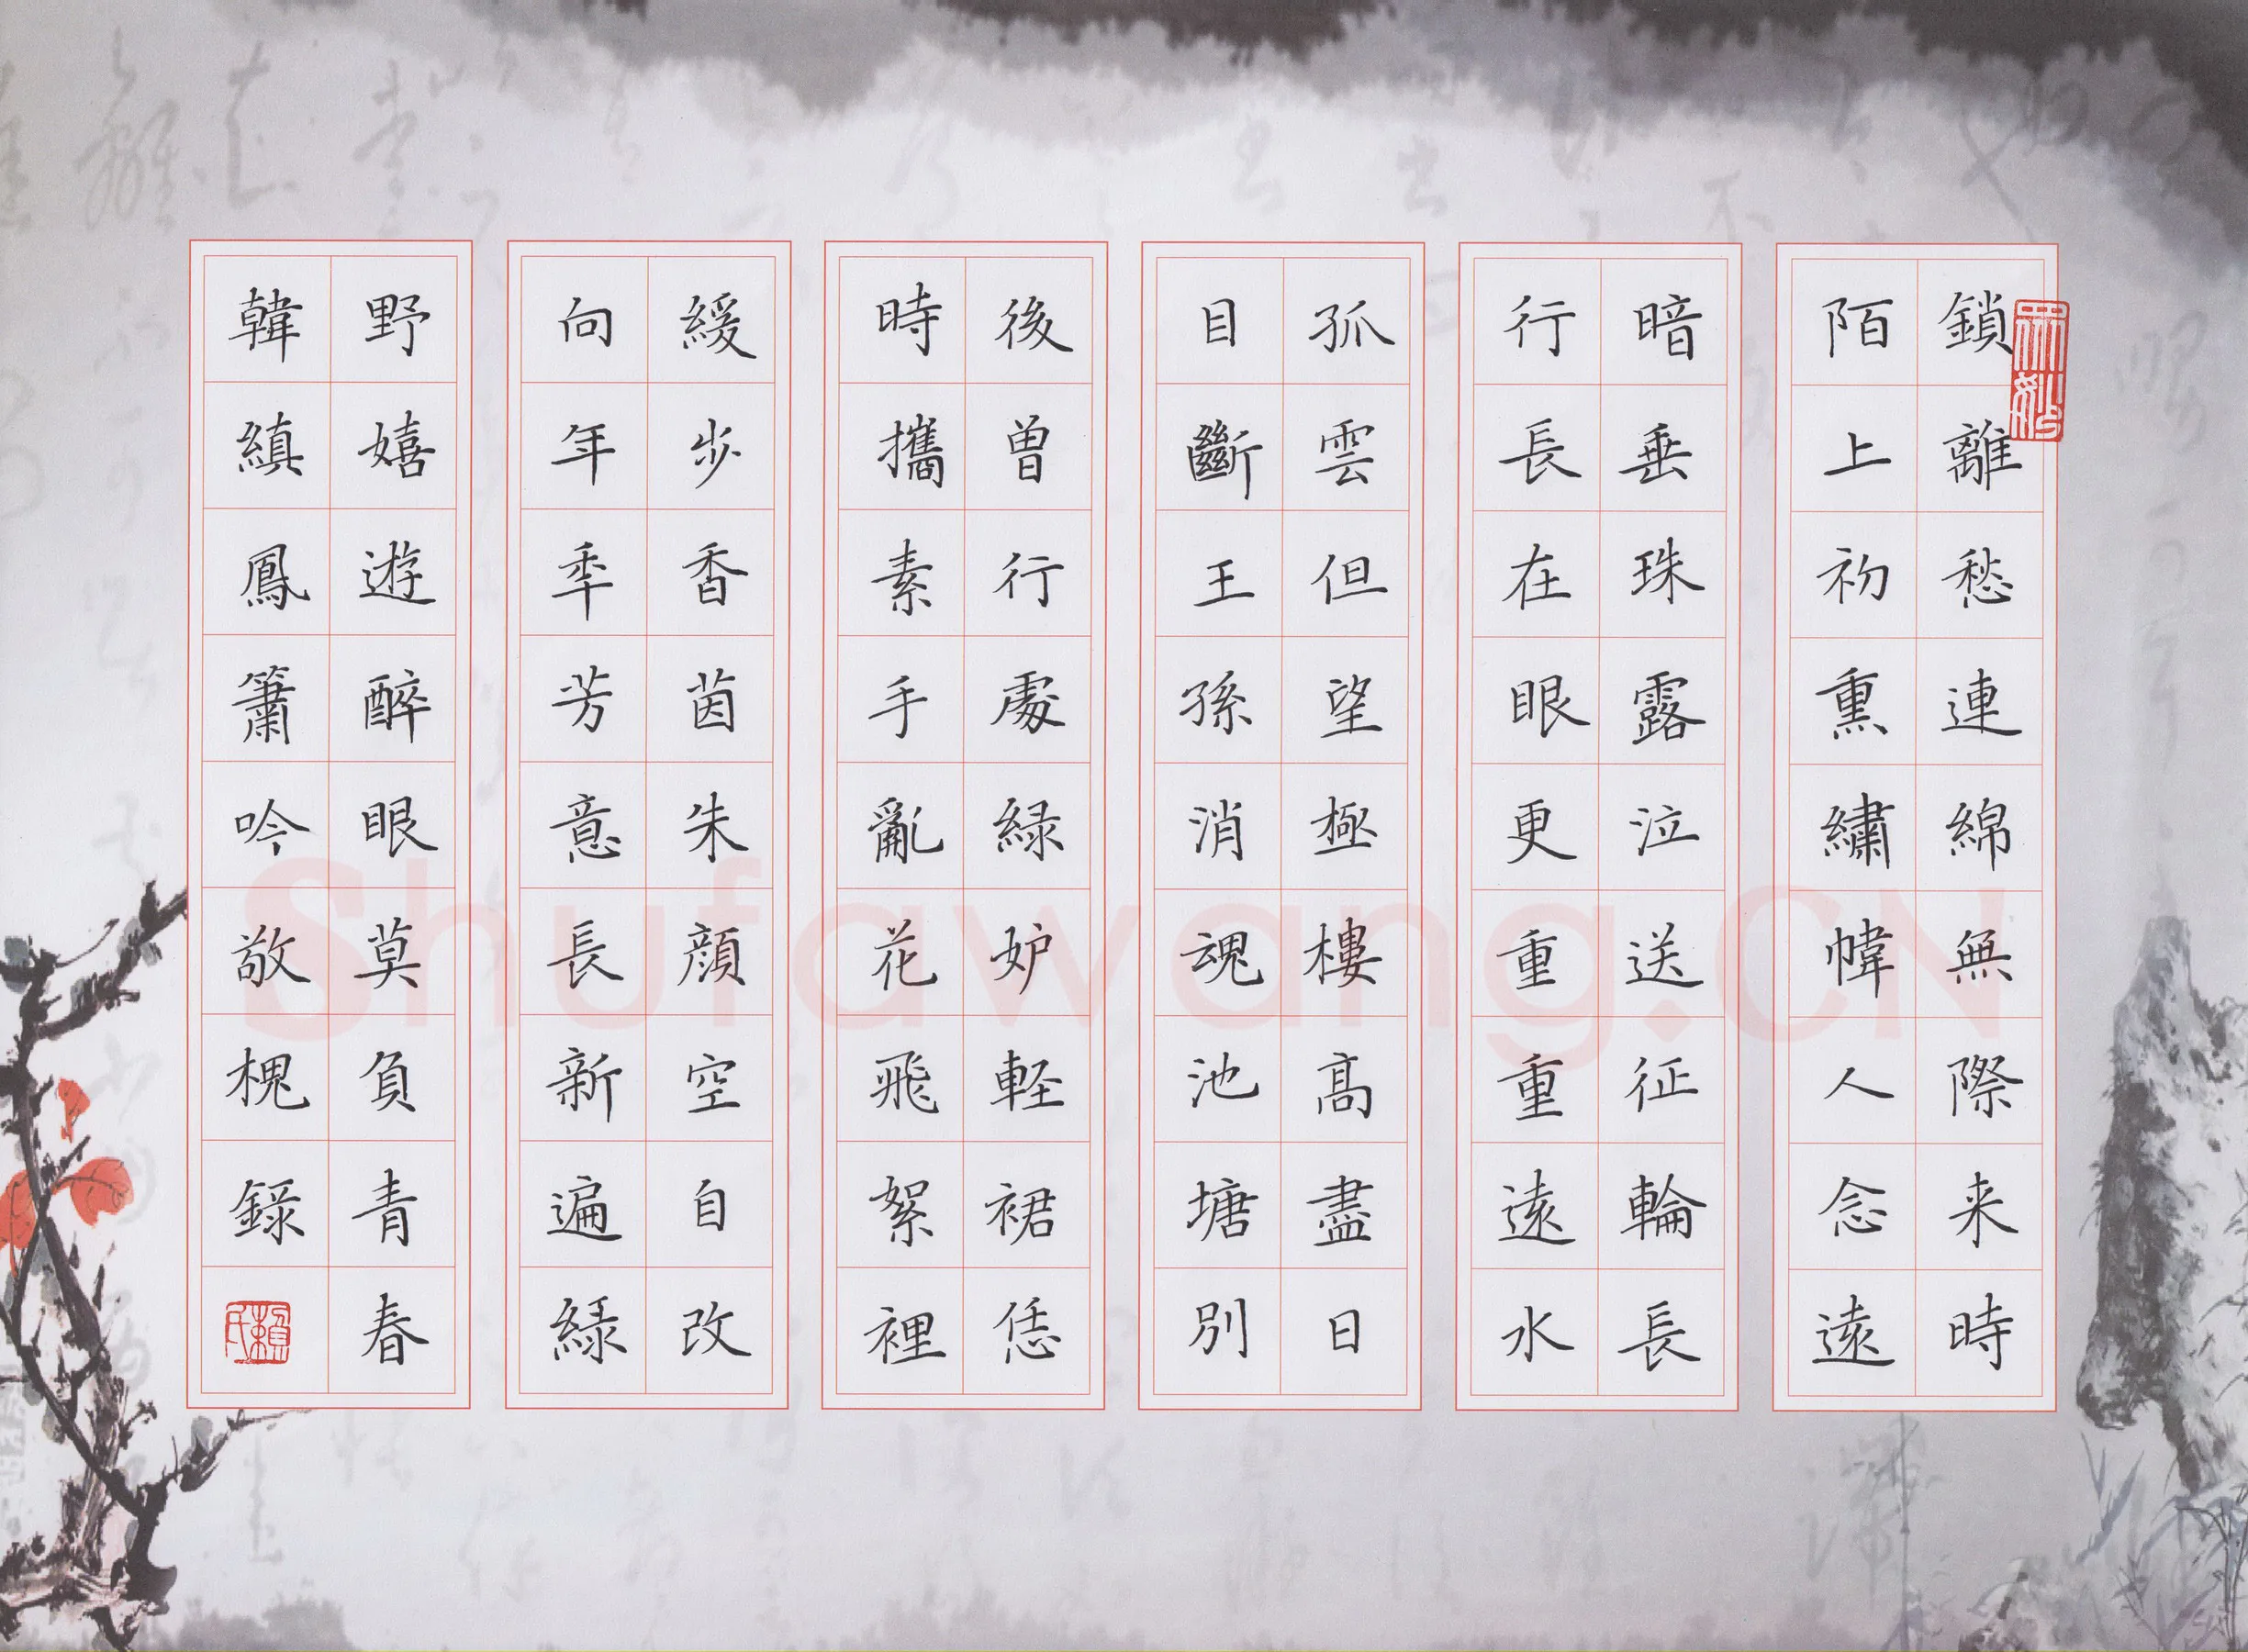 鎖離愁連綿無際来時
陌上初熏繡幃人念遠
暗垂珠露泣送征輪長
行長在眼更重重遠水
孤雲但望極樓高盡日
目斷王孫消魂池塘別
後曾行處緑妒軽裙恁
時攜素手亂花飛絮裡
緩步香茵朱顔空自改
向年年芳意長新遍緑
野嬉遊醉眼莫負青春
韓縝鳳簫吟敬槐錄
賴氏
Shufawang.CN